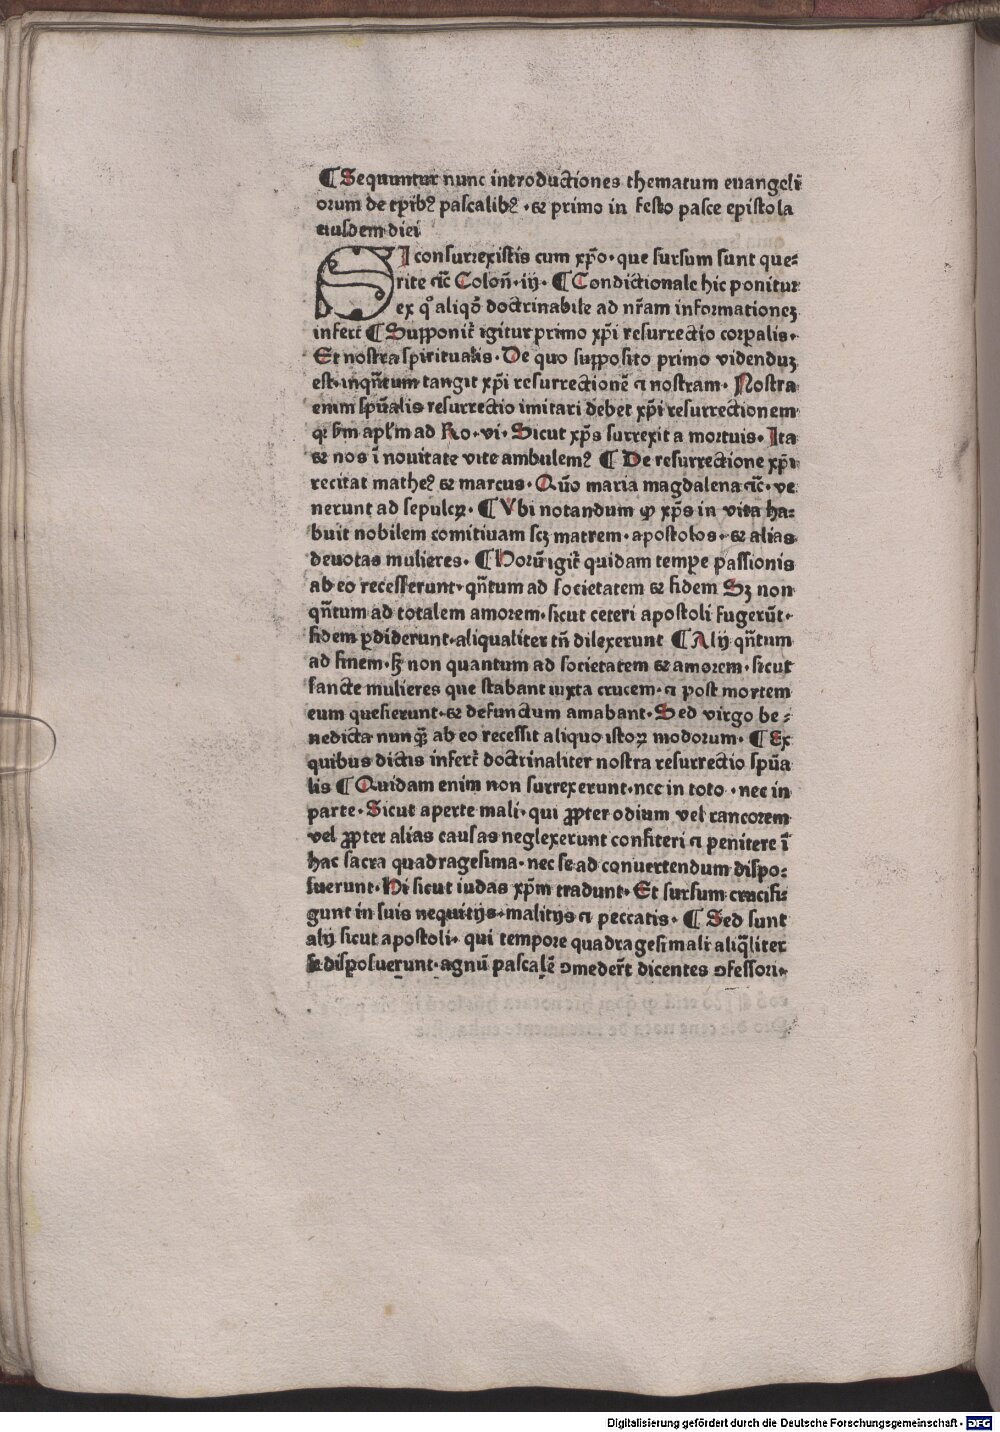 ¶ Sequuntur nunc introductiones thematum euangeli
orum de tp̄ibꝰ pascalibꝰ · et primo in festo pasce epistola
eiusdem diei
SI consurrexistis cum xp̄o · que sursum sunt que⸗
rite ⁊c̄ Colon̄ · iij · ¶ Condictionale hic ponitur
ex qͦ aliqđ doctrinabile ad nr̄am informationeꝫ
infert̄ ¶ Supponit̄ igitur primo xp̄i resurrectio corꝑalis ·
Et nostra spiritualis · De quo supposito primo videnduꝫ
est · inqn̄tum tangit xp̄i resurrectionē ⁊ nostram · Nostra
enim spūalis resurrectio imitari debet xp̄i resurrectionem
qꝛ ẜm apl̄m ad Ro · vi · Sicut xp̄s surrexit a mortuis · Ita
et nos ī nouitate vite ambulemꝰ ¶ De resurrectione xp̄i
recitat matheꝰ et marcus · Qūo maria magdalena ⁊c̄ · ve
nerunt ad sepulcꝝ · ¶ Vbi notandum ꝙ xp̄s in vita ha⸗
buit nobilem comitiuam scꝫ matrem · apostolos · et alias
deuotas mulieres · ¶ Horū igit̄ quidam tempe passionis
ab eo recesserunt · qn̄tum ad societatem et fidem Sꝫ non
qn̄tum ad totalem amorem · sicut ceteri apostoli fugerūt ·
fidem ꝑdiderunt · aliqualiter tn̄ dilexerunt ¶ Alij qn̄tum
ad finem · sꝫ non quantum ad societatem et amorem · sicut
sancte mulieres que stabant iuxta crucem · ⁊ post mortem
eum quesierunt · et defunctum amabant · Sed virgo be⸗
nedicta nunqꝫ̄ ab eo recessit aliquo istoꝝ modorum · ¶ Ex
quibus dictis infert̄ doctrinaliter nostra resurrectio spūa
lis ¶ Quidam enim non surrexerunt · nec in toto · nec in
parte · Sicut aperte mali · qui ꝓpter odium vel rancorem
vel ꝓpter alias causas neglexerunt confiteri ⁊ penitere ī
hac sacra quadragesima · nec se ad conuertendum dispo⸗
suerunt · Hi sicut iudas xp̄m tradunt · Et sursum crucifi⸗
gunt in suis nequitijs · malitijs ⁊ peccatis · ¶ Sed sunt
alij sicut apostoli · qui tempore quadragesimali aliq̄liter
se disposuerunt · agnū pascalē ꝯmeder̄t dicentes ꝯfessori ·
Digitalisierung gefördert durch die Deutsche Forschungsgemeinschaft - DFG